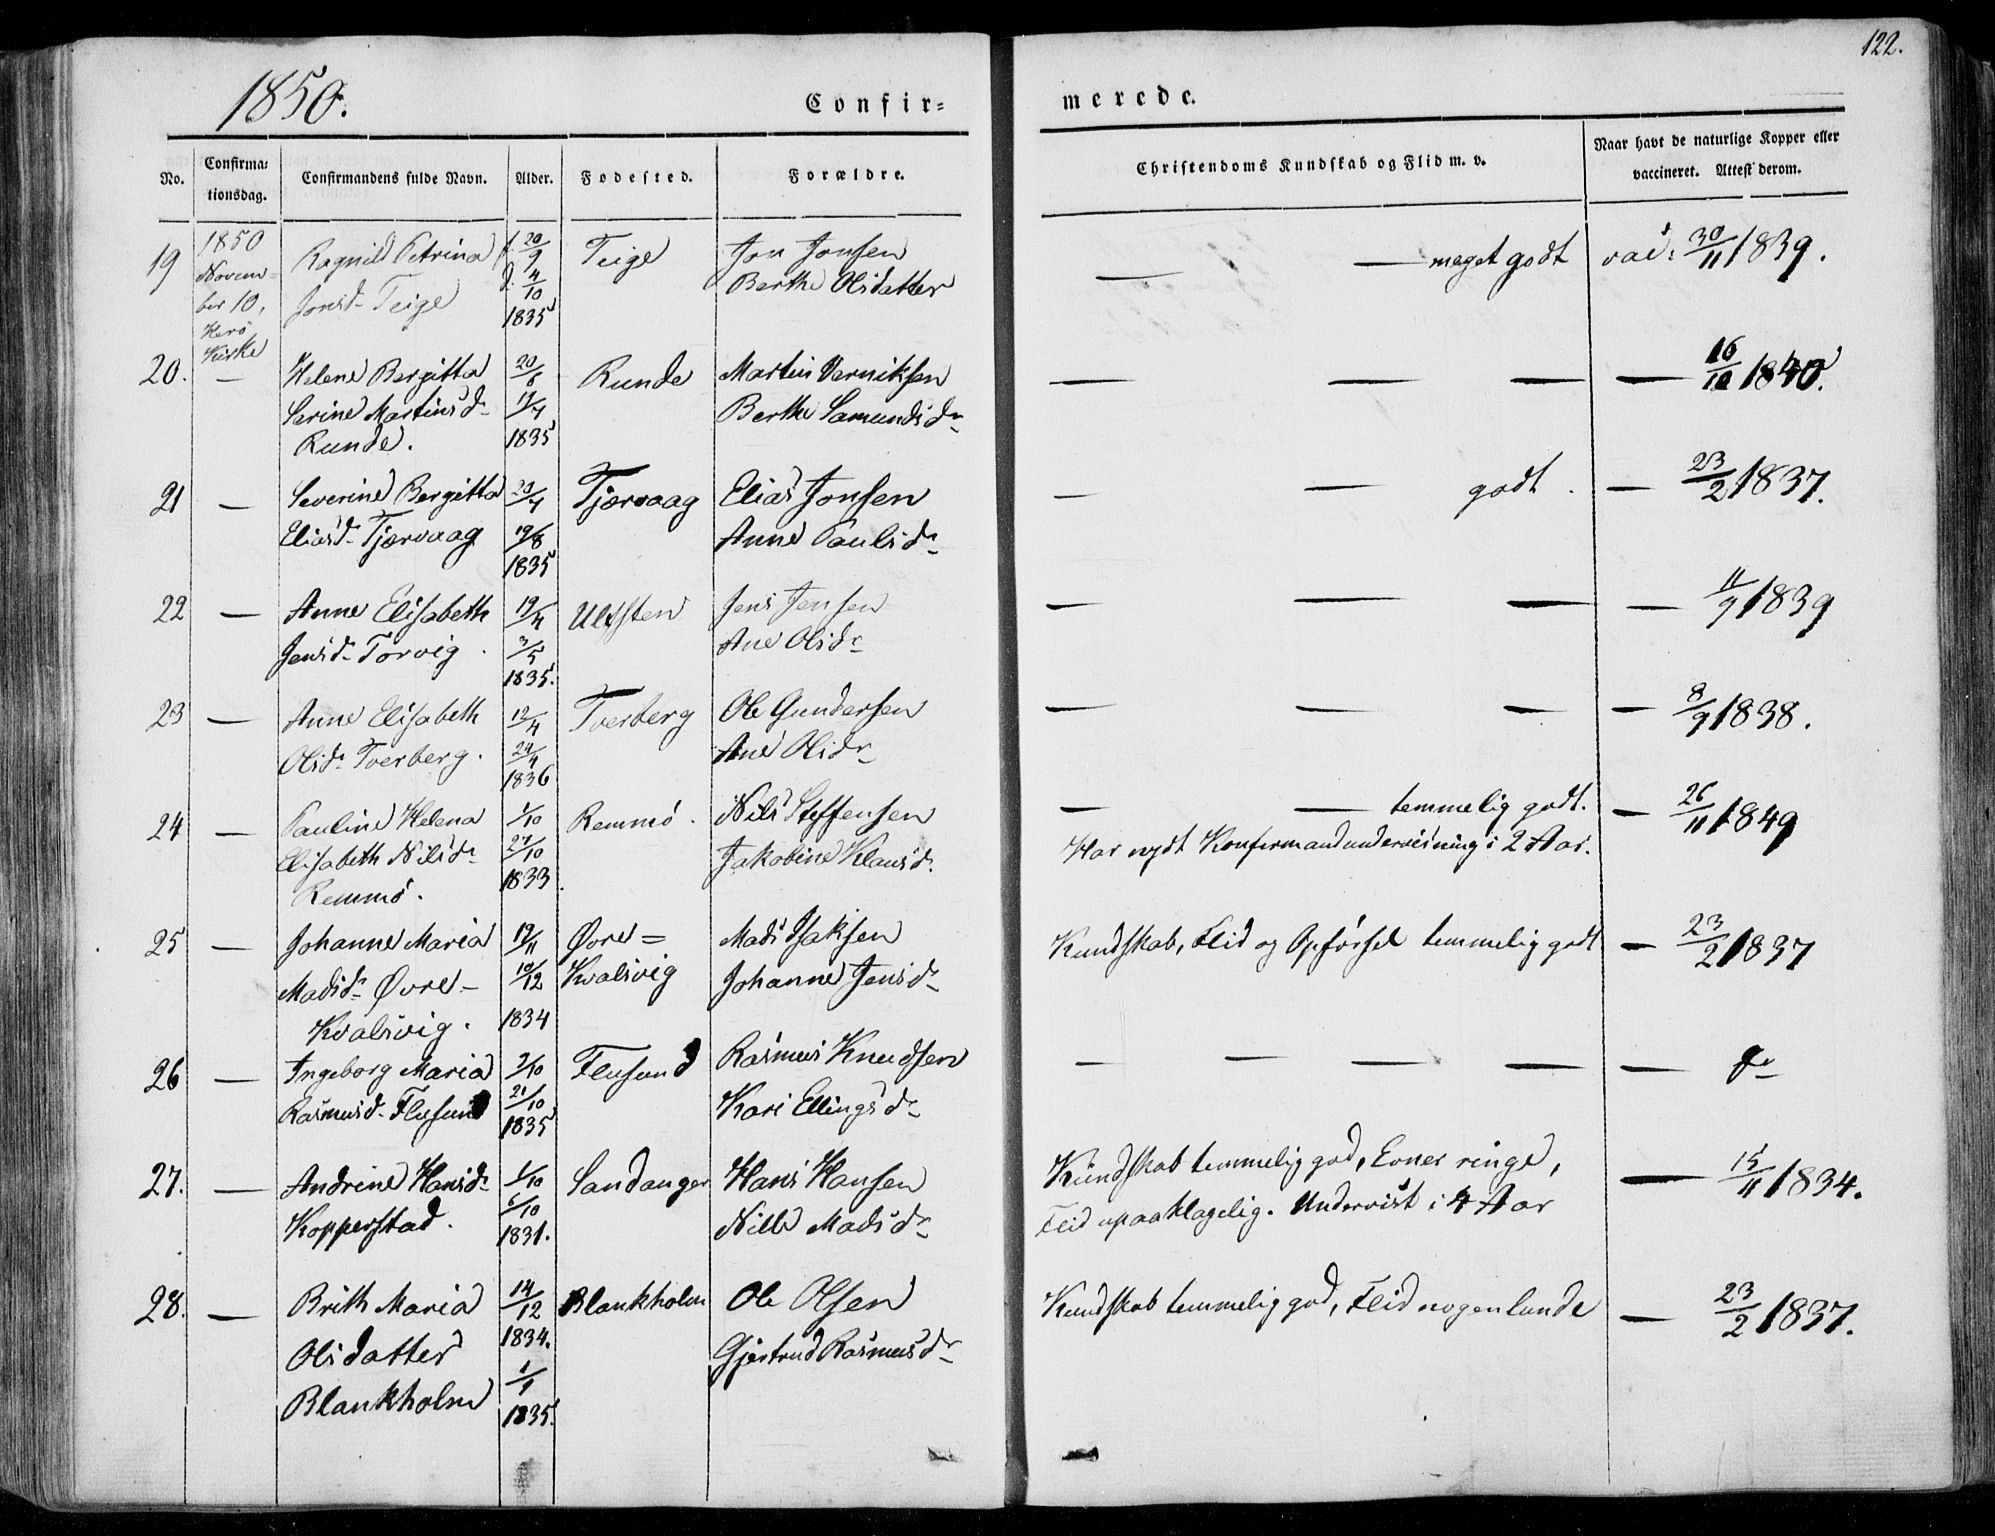 122.
1850.
Confir=
merede.
No.
Confirma=
tionsdag.
Confirmandens fulde Navn.
Alder.
Fødested.
Forældre.
Christendoms Kundskab og Flid m. v.
Naar havt de naturlige Kopper eller
vaccineret. Attest derom.
19
1850
Novem-
ber 10,
Herö
Kirke
Ragnild Petrina
Jonsd. Teige
f. 20/9
d. 4/10
1835
Teige
Jon Jonsen
Berthe Olsdatter
— — meget godt
vac: 30/11 1839.
20. —
Helene Bergitta
Serine Martinsd.
Runde.
20/6
1835
Runde
Martin Verniksen
Berthe Samundsdr
— — —
— 16/10 1840.
21 —
Severine Bergitta
Eliasd. Tjørvaag
20/7
19/8
1835
Tjørvaag
Elias Jonsen
Anne Paulsdr
— — godt.
— 23/2 1837.
22 —
Anne Elisabeth
Jensd. Torvig.
19/4
3/5
1835.
Ulfsten
Jens Jensen
Ane Olsdr
— — —
— 11/9 1839
23 —
Anne Elisabeth
Olsdr Tverberg.
12/4
24/4
1836
Tverberg
Ole Gundersen
Ane Olsdr
— — —
— 8/9 1838.
24 —
Pauline Helena
Elisabeth Nilsdr
Remmö.
1/10
27/10
1833.
Remmö.
Nils Steffensen
Jakobine Klausdr.
— — temmelig godt.
Har nydt Konfermandundervisning i 2 Aar.
— 26/11 1849
25 —
Johanne Maria
Madsdr Øvre-
Kvalsvig.
19/11
10/12
1834
Øvre=
Kvalsvig
Mads Isaksen
Johanne Jensdr
Kundskab, Flid og Opförsel temmelig godt
— 23/2 1837
26 —
Ingeborg Maria
Rasmusd. Flusund
3/10
21/10
1835
Flusund
Rasmus Knudsen
Kari Ellingsdr
— — — —
— do
27. —
Andrine Hansdr
Kopperstad.
1/10
6/10
1831.
Sandanger
Hans Hansen
Nille Madsdr
Kundskab temmelig god, Evner ringe,
Flid upaaklagelig. Undervist i 4 Aar
— 15/11 1834.
28. —
Brith Maria
Olsdatter
Blankholm
14/12
1834.
1/1
1835.
Blankholm
Ole Olsen
Gjertrud Rasmusdr
Kundskab temmelig god, Flid nogenlunde
— 23/2 1837.